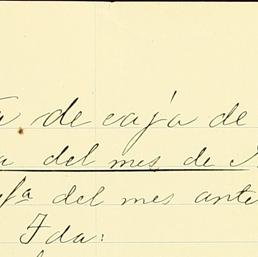 de caja de
del mes de
del mes ante
Ida: